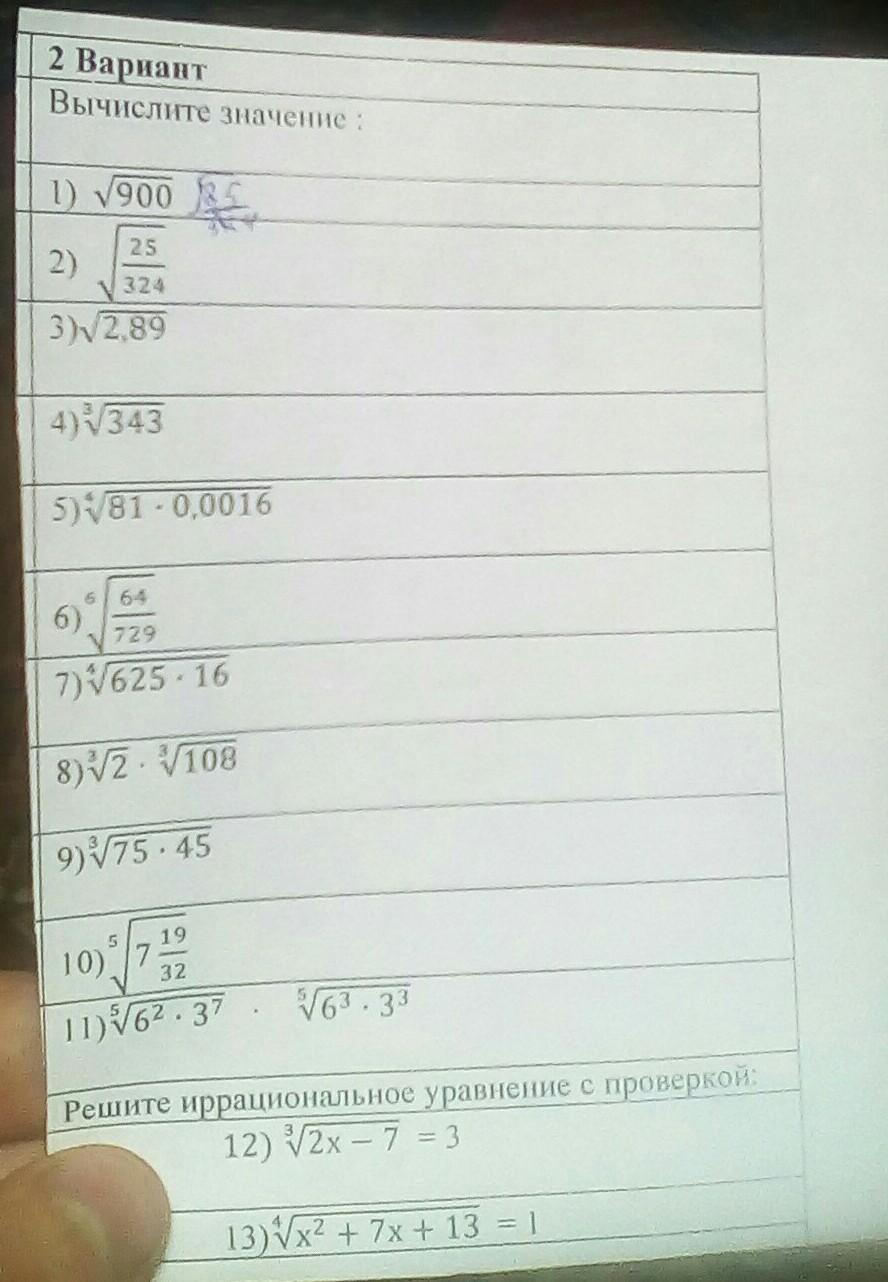 2 Вариант
Вычислите значение :
1) √900
2) √(25/324)
3)√2,89
4)∛343
5)∜81 · 0,0016
6)⁶√(64/729)
7)∜625 · 16
8)∛2 · ∛108
9)∛75 · 45
10)⁵√(7 19/32)
11)⁵√6² · 3⁷ · ⁵√6³ · 3³
Решите иррациональное уравнение с проверкой:
12) ∛2x − 7 = 3
13)∜x² + 7x + 13 = 1